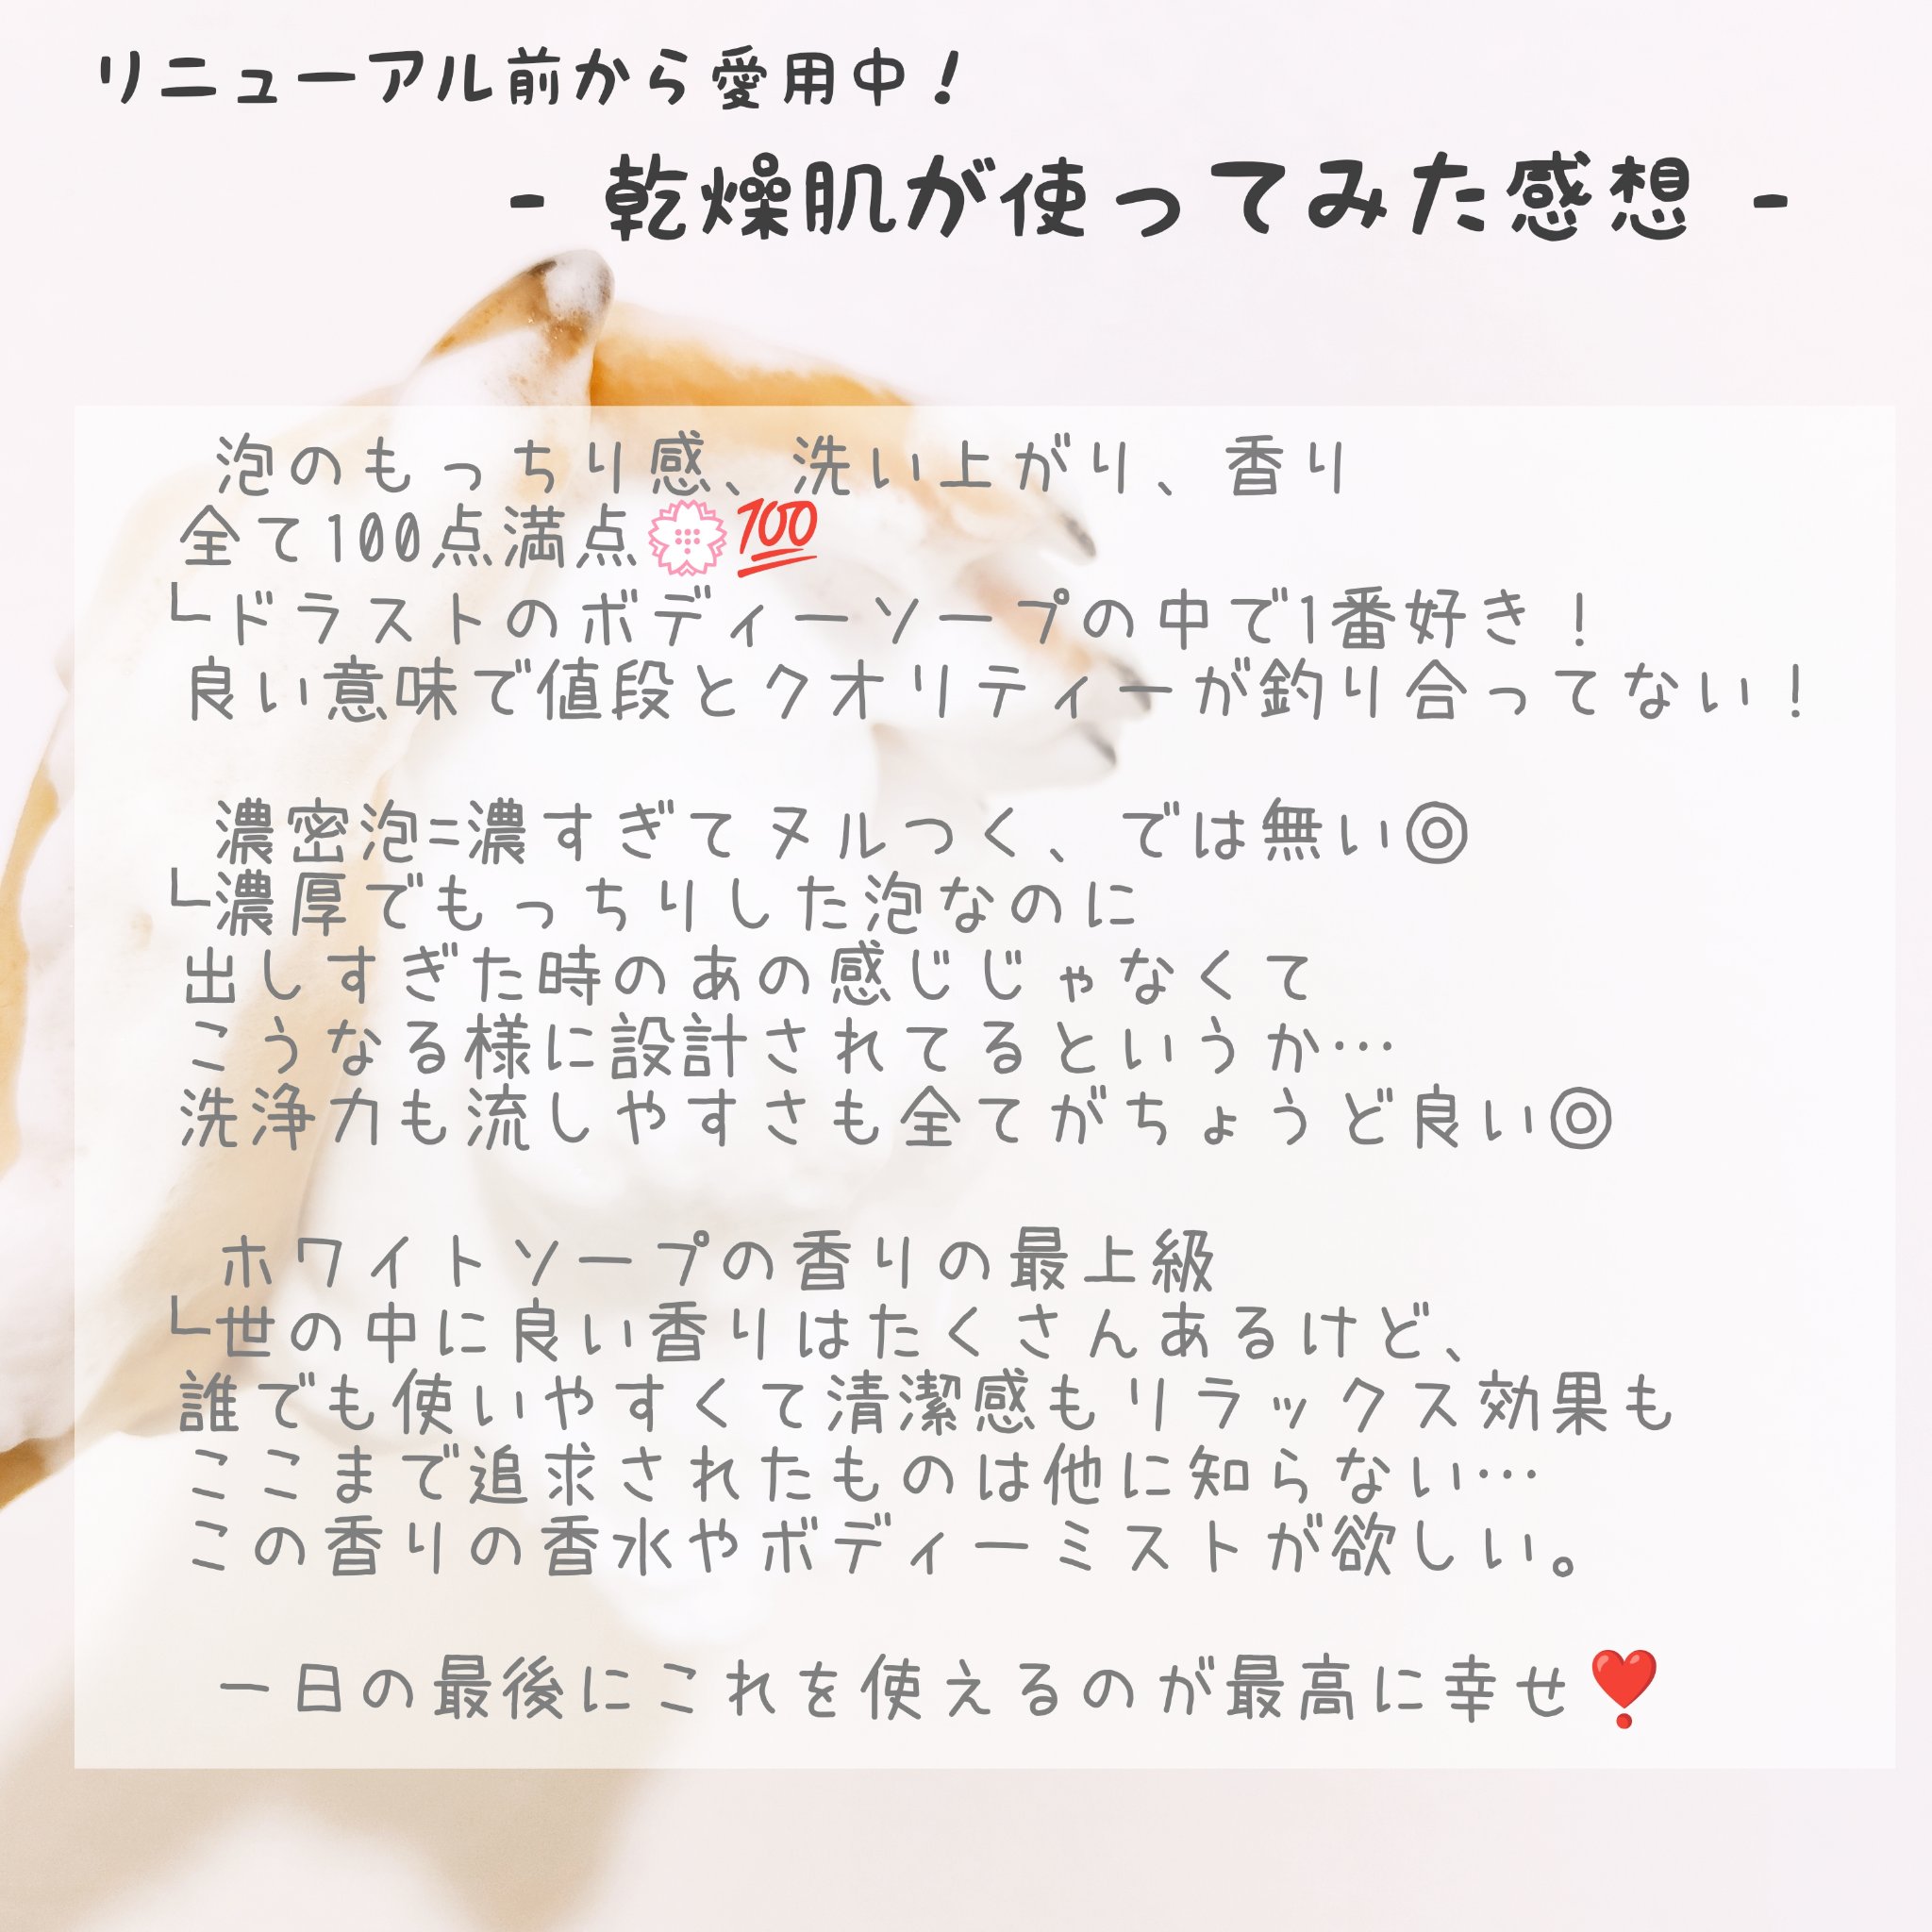 リニューアル前から愛用中！
- 乾燥肌が使ってみた感想 -
泡のもっちり感、洗い上がり、香り
全て100点満点💮💯
┗ドラストのボディーソープの中で1番好き！
良い意味で値段とクオリティーが釣り合ってない！
濃密泡=濃すぎてヌルつく、では無い◎
┗濃厚でもっちりした泡なのに
出しすぎた時のあの感じじゃなくて
こうなる様に設計されてるというか…
洗浄力も流しやすさも全てがちょうど良い◎
ホワイトソープの香りの最上級
┗世の中に良い香りはたくさんあるけど、
誰でも使いやすくて清潔感もリラックス効果も
ここまで追求されたものは他に知らない…
この香りの香水やボディーミストが欲しい。
一日の最後にこれを使えるのが最高に幸せ❣️